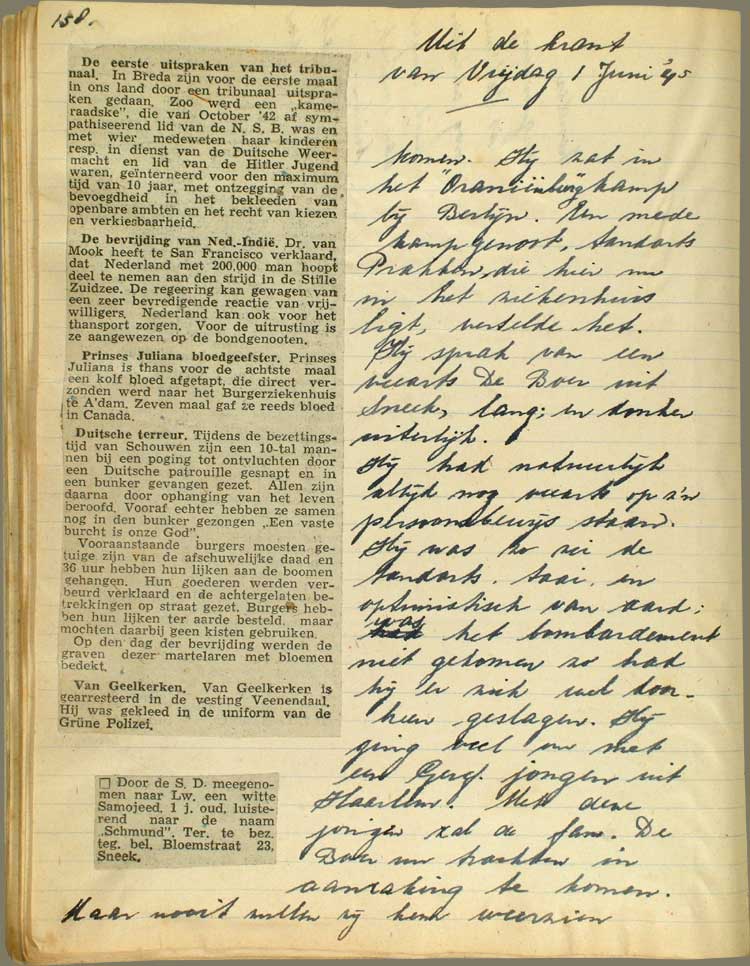 158.
De eerste uitspraken van het tribu-
naal. In Breda zijn voor de eerste maal
in ons land door een tribunaal uitspra-
ken gedaan. Zoo werd een „kame-
raadske”, die van October '42 af sym-
pathiseerend lid van de N. S. B. was en
met wier medeweten haar kinderen
resp. in dienst van de Duitsche Weer-
macht en lid van de Hitler Jugend
waren, geïnterneerd voor den maximum
tijd van 10 jaar, met ontzegging van de
bevoegdheid in het bekleeden van
openbare ambten en het recht van kiezen
en verkiesbaarheid.
De bevrijding van Ned.-Indië. Dr. van
Mook heeft te San Francisco verklaard,
dat Nederland met 200.000 man hoopt
deel te nemen aan den strijd in de Stille
Zuidzee. De regeering kan gewagen van
een zeer bevredigende reactie van vrij-
willigers. Nederland kan ook voor het
thansport zorgen. Voor de uitrusting is
ze aangewezen op de bondgenooten.
Prinses Juliana bloedgeefster. Prinses
Juliana is thans voor de achtste maal
een kolf bloed afgetapt, die direct ver-
zonden werd naar het Burgerziekenhuis
te A'dam. Zeven maal gaf ze reeds bloed
in Canada.
Duitsche terreur. Tijdens de bezettings-
tijd van Schouwen zijn een 10-tal man-
nen bij een poging tot ontvluchten door
een Duitsche patrouille gesnapt en in
een bunker gevangen gezet. Allen zijn
daarna door ophanging van het leven
beroofd. Vooraf echter hebben ze samen
nog in den bunker gezongen „Een vaste
burcht is onze God”.
Vooraanstaande burgers moesten ge-
tuige zijn van de afschuwelijke daad en
36 uur hebben hun lijken aan de boomen
gehangen. Hun goederen werden ver-
beurd verklaard en de achtergelaten be-
trekkingen op straat gezet. Burgers heb-
ben hun lijken ter aarde besteld, maar
mochten daarbij geen kisten gebruiken.
Op den dag der bevrijding werden de
graven dezer martelaren met bloemen
bedekt.
Van Geelkerken. Van Geelkerken is
gearresteerd in de vesting Veenendaal.
Hij was gekleed in de uniform van de
Grüne Polizei.
□ Door de S. D. meegeno-
men naar Lw. een witte
Samojeed. 1 j. oud, luiste-
rend naar de naam
„Schmund”. Ter. te bez.
teg. bel. Bloemstraat 23,
Sneek.
Uit de krant
van Vrijdag 1 Juni '45
komen. Hij zat in
het "Oraniënburg" kamp
bij Berlijn. Een mede
kampgenoot, tandarts
Prakken, die hier nu
in het ziekenhuis
ligt, vertelde het.
Hij sprak van een
veearts De Boer uit
Sneek, lang; en donker
uiterlijk.
Hij had natuurlijk
altijd nog veearts op z'n
persoonsbewijs staan.
Hij was zo zei de
tandarts. taai. en
optimistisch van aard;
was het bombardement
niet gekomen zo had
hij er zich wel door-
heen geslagen. Hij
ging veel om met
een Geref. jongen uit
Haarlem. Met deze
jongen zal de fam. De
Boer nu trachten in
aanraking te komen.
Maar nooit zullen zij hem weerzien